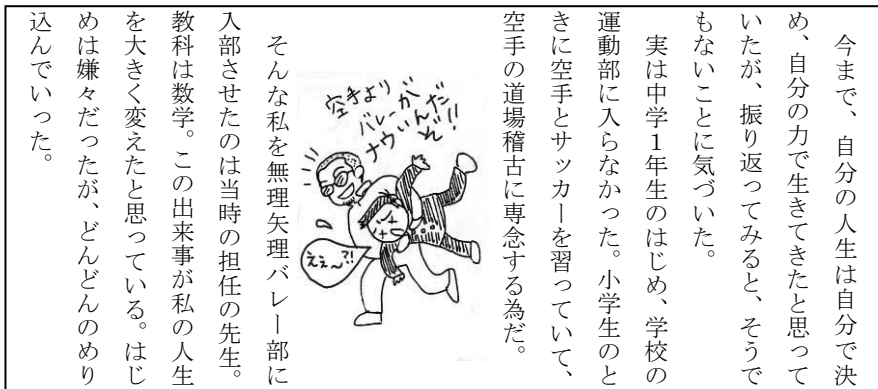 今まで、自分の人生は自分で決
め、自分の力で生きてきたと思って
いたが、振り返ってみると、そうで
もないことに気づいた。
実は中学１年生のはじめ、学校の
運動部に入らなかった。小学生のと
きに空手とサッカーを習っていて、
空手の道場稽古に専念する為だ。
空手より
バレーが
ナウいんだ
ぜ!!
ええ〜?!
そんな私を無理矢理バレー部に
入部させたのは当時の担任の先生。
教科は数学。この出来事が私の人生
を大きく変えたと思っている。はじ
めは嫌々だったが、どんどんのめり
込んでいった。